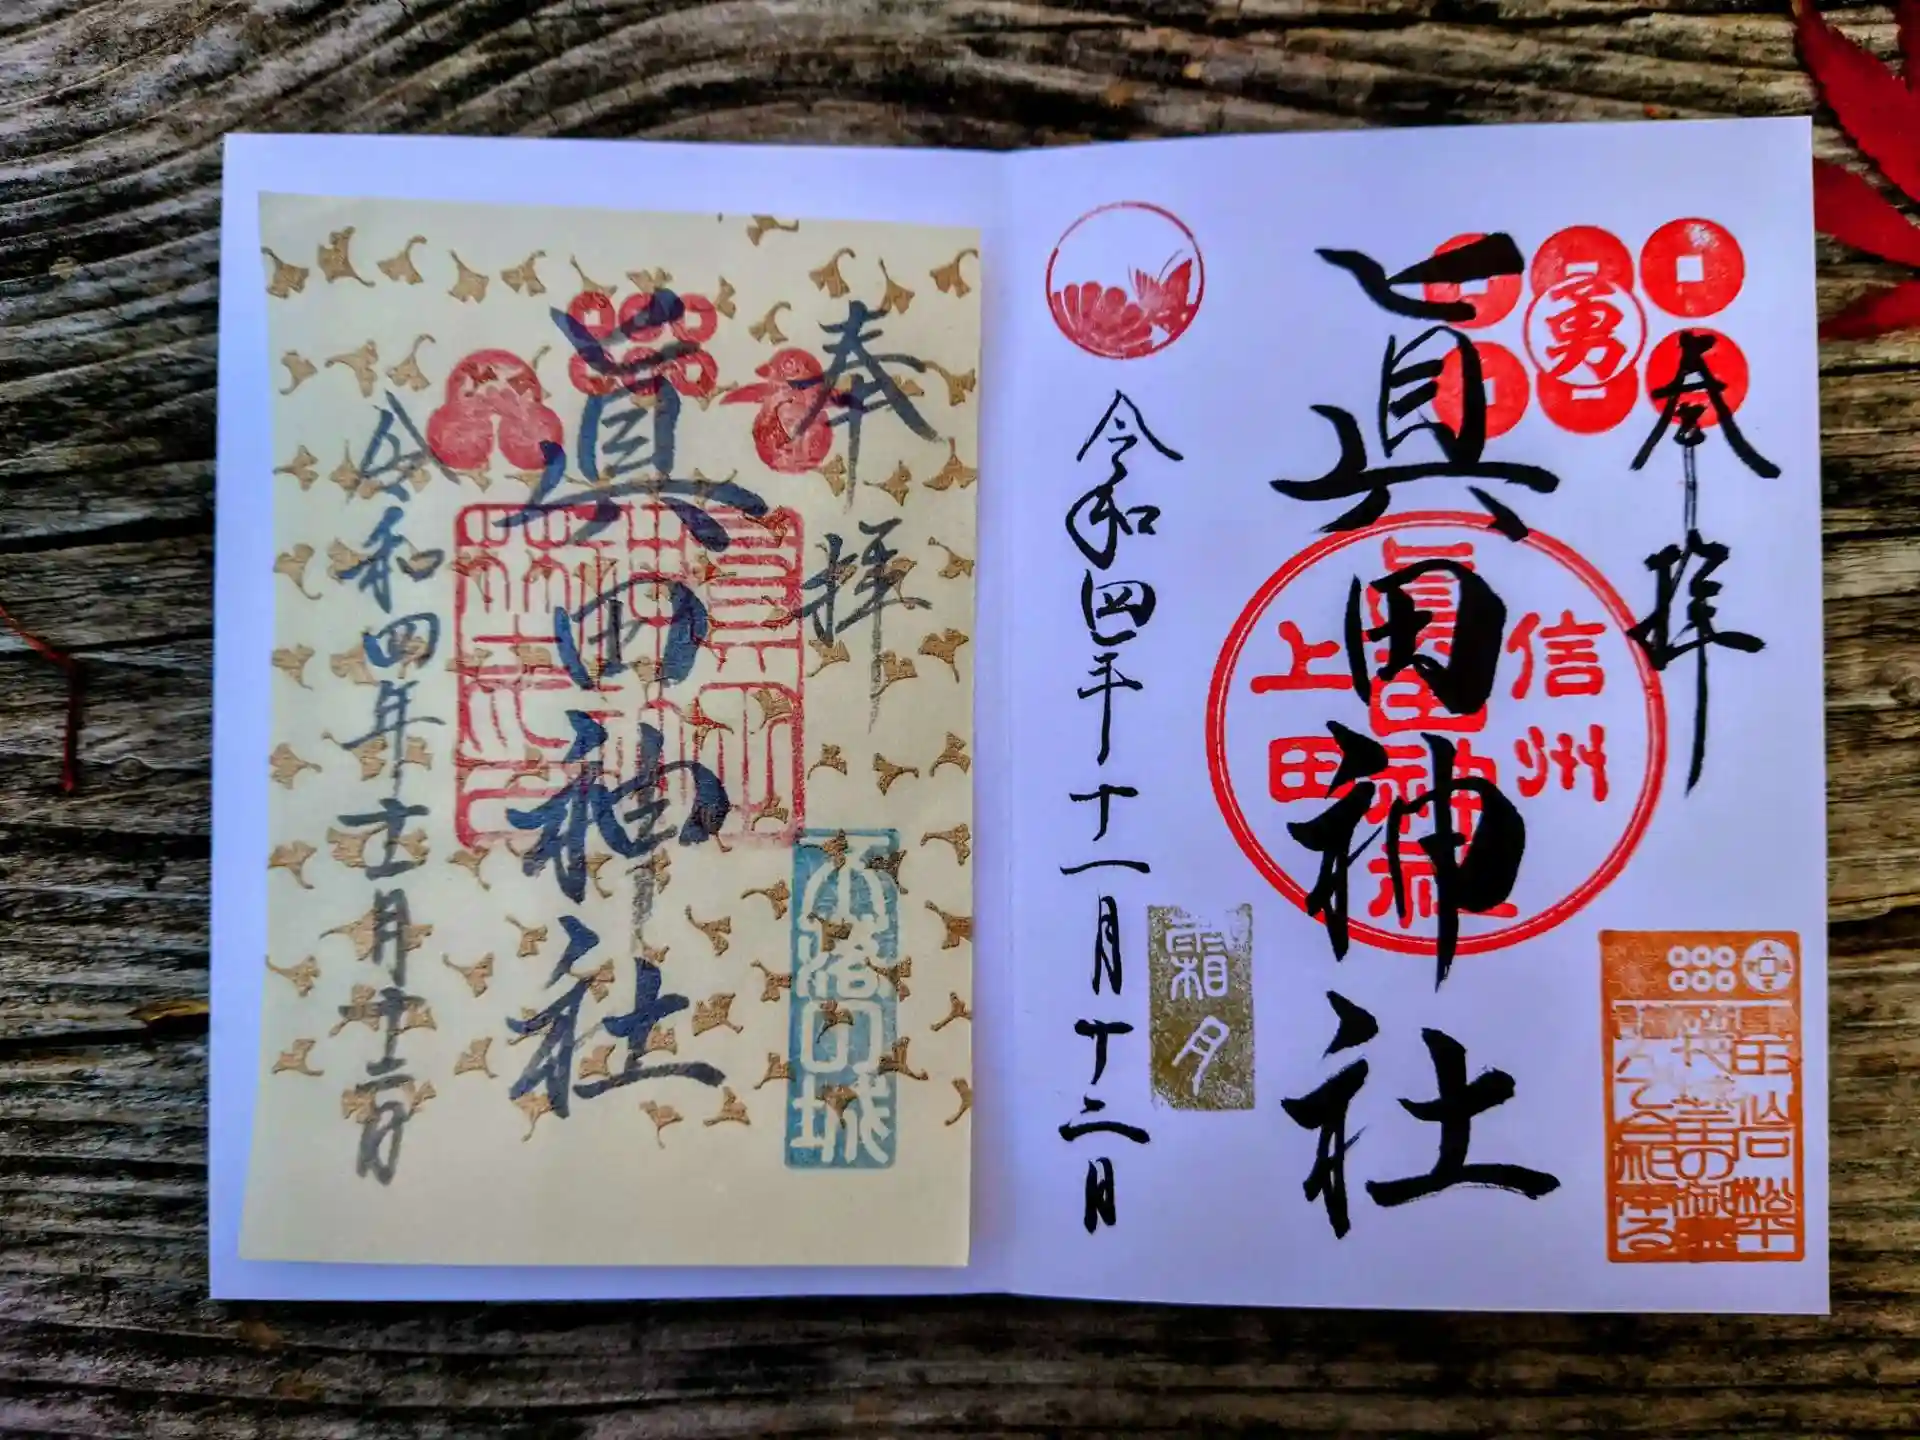 奉拝
眞田神社
信州
上田
眞田神社
勇
令和四年十一月十二日
霜月
奉拝
眞田神社
不落の城
令和四年十一月十二日